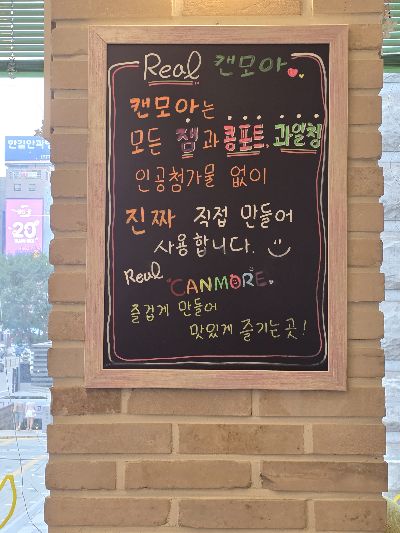 Real 캔모아
캔모아는
모든 잼과 콩포트, 과일청
인공첨가물 없이
진짜 직접 만들어
사용합니다.
Real CANMORE.
즐겁게 만들어
맛있게 즐기는 곳!
한길안과
20